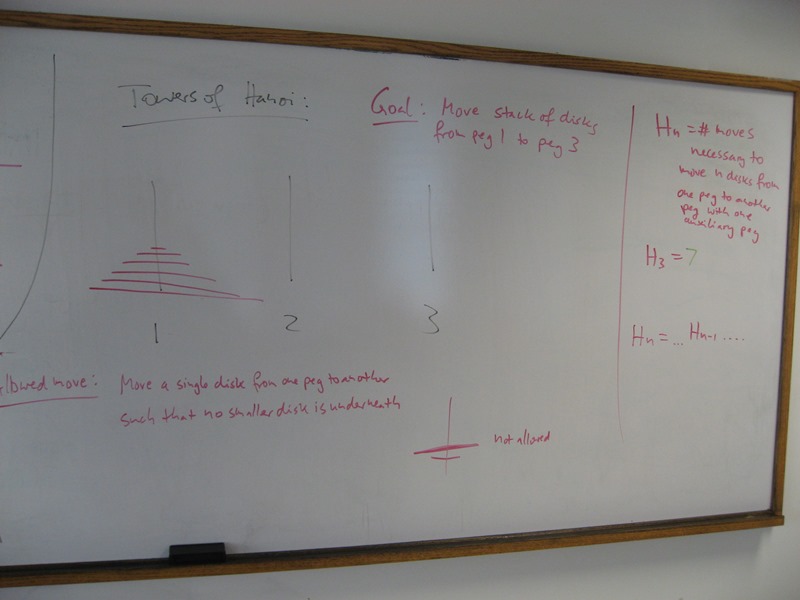 Towers of Hanoi:
Goal: Move stack of disks
from peg 1 to peg 3
1
2
3
llowed move: Move a single disk from one peg to another
such that no smaller disk is underneath
not allowed
Hn = # moves
necessary to
move n disks from
one peg to another
peg with one
auxiliary peg
H3 = 7
Hn = ... Hn-1 ....